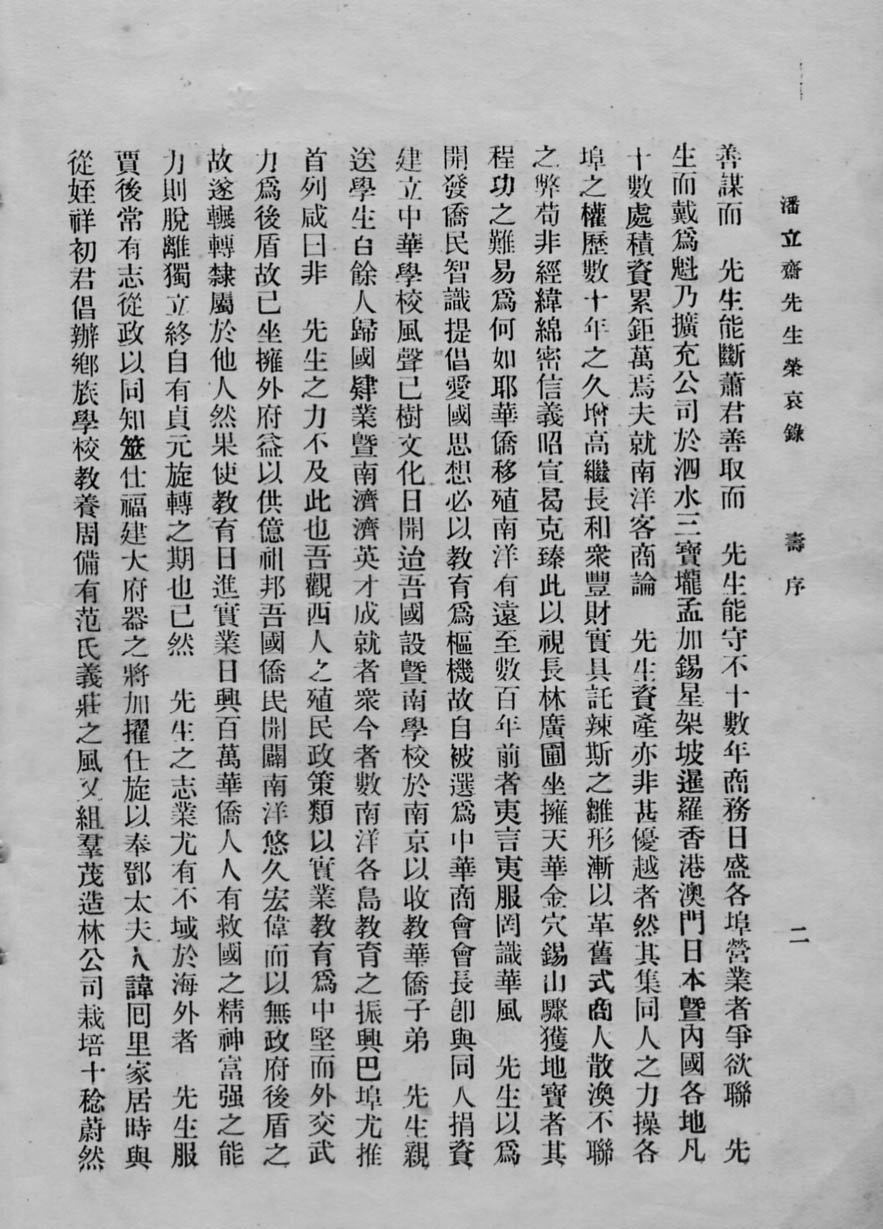 潘立齋先生榮哀錄　壽序　二
善謀而　先生能斷蕭君善取而　先生能守不十數年商務日盛各埠營業者爭欲聯　先
生而戴爲魁乃擴充公司於泗水三寶壠孟加錫星架坡暹羅香港澳門日本曁內國各地凡
十數處積資累鉅萬焉夫就南洋客商論　先生資產亦非甚優越者然其集同人之力操各
埠之權歷數十年之久增高繼長和衆豐財實具託辣斯之雛形漸以革舊式商人散渙不聯
之弊苟非經緯綿密信義昭宣曷克臻此以視長林廣圃坐擁天華金穴錫山驟獲地寶者其
程功之難易爲何如耶華僑移殖南洋有遠至數百年前者夷言夷服罔識華風　先生以爲
開發僑民智識提倡愛國思想必以教育爲樞機故自被選爲中華商會會長卽與同人捐資
建立中華學校風聲已樹文化日開迨吾國設曁南學校於南京以收教華僑子弟　先生親
送學生百餘人歸國肄業曁南濟濟英才成就者衆今者數南洋各島教育之振興巴埠尤推
首列咸曰非　先生之力不及此也吾觀西人之殖民政策類以實業教育爲中堅而外交武
力爲後盾故已坐擁外府益以供億祖邦吾國僑民開闢南洋悠久宏偉而以無政府後盾之
故遂輾轉隸屬於他人然果使教育日進實業日興百萬華僑人人有救國之精神富强之能
力則脫離獨立終自有貞元旋轉之期也已然　先生之志業尤有不域於海外者　先生服
賈後常有志從政以同知筮仕福建大府器之將加擢仕旋以奉鄧太夫人諱囘里家居時與
從姪祥初君倡辦鄕族學校教養周備有范氏義莊之風又組羣茂造林公司栽培十稔蔚然